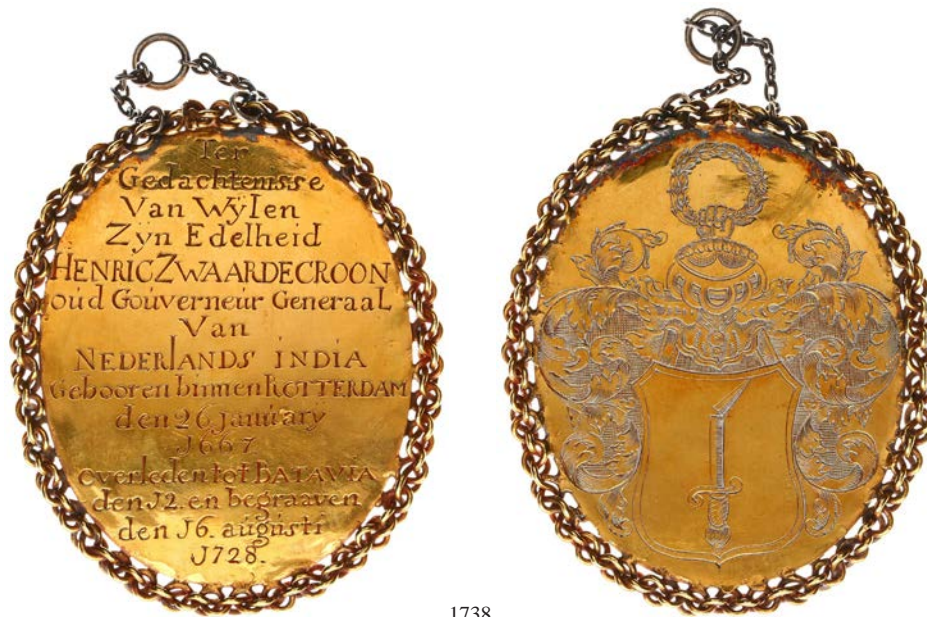 Ter
Gedachtenisse
Van Wÿlen
Zÿn Edelheid
HENRIC ZWAARDECROON
oud Gouverneur GeneraaL
Van
NEDERlANDS iNDIA
Gebooren binnen ROTTERDAM
den 26 januarÿ
J667
overleden tot BATAVIA
den J2. en begraaven
den J6. augusti
J728.
1738